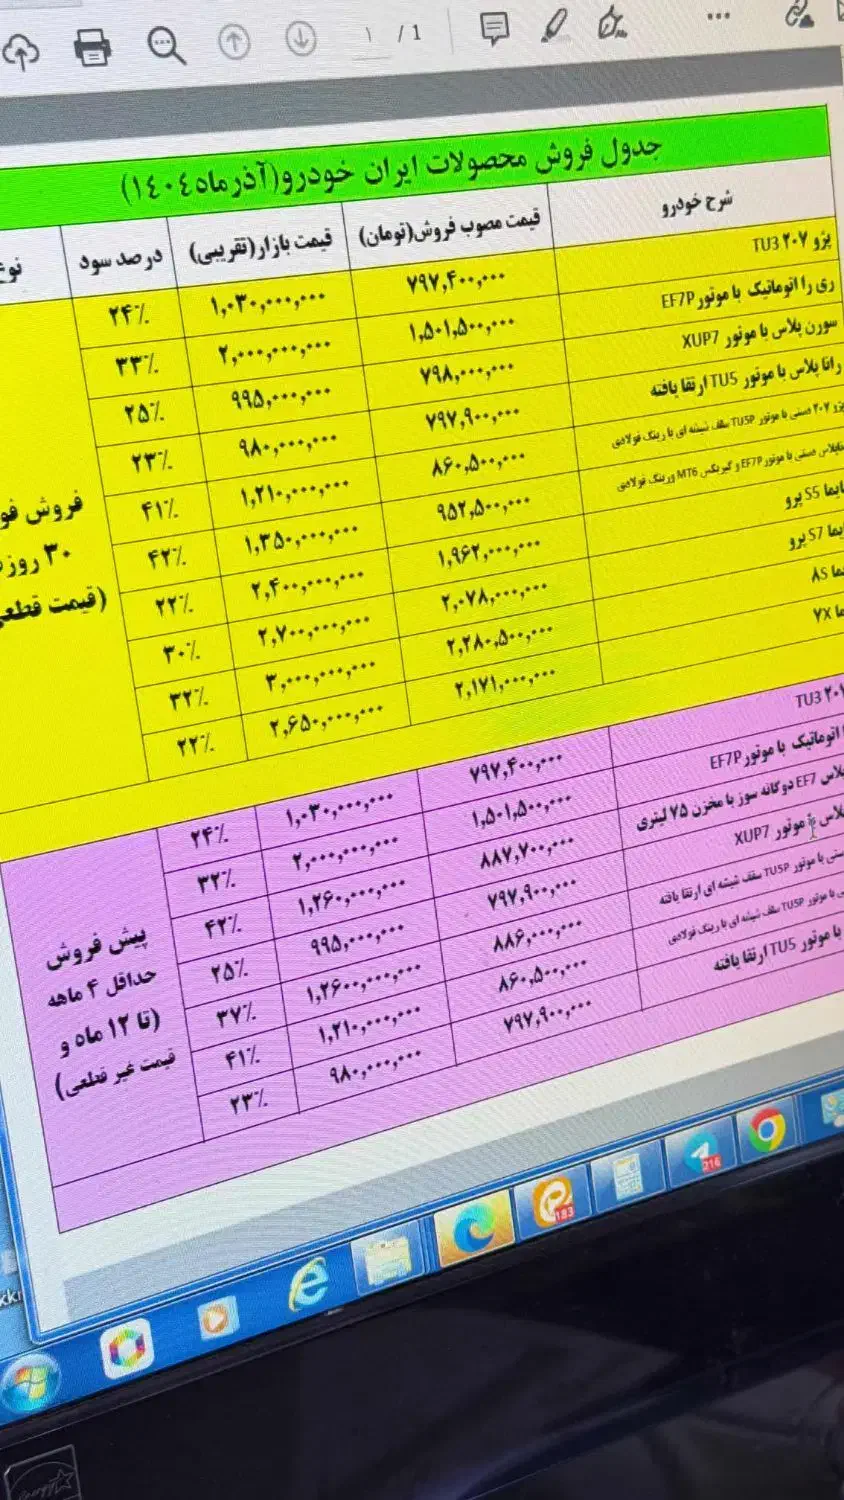 ۱ / 1
جدول فروش محصولات ایران خودرو(آذرماه۱۴۰۴)
شرح خودرو قیمت مصوب فروش(تومان) قیمت بازار(تقریبی) درصد سود
پژو ۲۰۷ TU3 ۷۹۷,۴۰۰,۰۰۰ ۱,۰۳۰,۰۰۰,۰۰۰ ۲۴٪
ری را اتوماتیک با موتور EF7P ۱,۵۰۱,۵۰۰,۰۰۰ ۲,۰۰۰,۰۰۰,۰۰۰ ۳۳٪
سورن پلاس با موتور XUP7 ۷۹۸,۰۰۰,۰۰۰ ۹۹۵,۰۰۰,۰۰۰ ۲۵٪
رانا پلاس با موتور TU5 ارتقا یافته ۷۹۷,۹۰۰,۰۰۰ ۹۸۰,۰۰۰,۰۰۰ ۲۳٪
پژو ۲۰۷ دستی با موتور TU5P سقف شیشه ای با رینگ فولادی ۸۶۰,۵۰۰,۰۰۰ ۱,۲۱۰,۰۰۰,۰۰۰ ۴۱٪
دستی با موتور EF7P و گیربکس MT6 ورینگ فولادی ۹۵۲,۵۰۰,۰۰۰ ۱,۳۵۰,۰۰۰,۰۰۰ ۴۲٪
S5 پرو ۱,۹۶۲,۰۰۰,۰۰۰ ۲,۴۰۰,۰۰۰,۰۰۰ ۲۲٪
S7 پرو ۲,۰۷۸,۰۰۰,۰۰۰ ۲,۷۰۰,۰۰۰,۰۰۰ ۳۰٪
۸S ۲,۲۸۰,۵۰۰,۰۰۰ ۳,۰۰۰,۰۰۰,۰۰۰ ۳۲٪
۷X ۲,۱۷۱,۰۰۰,۰۰۰ ۲,۶۵۰,۰۰۰,۰۰۰ ۲۲٪
فروش
۳۰ روزه
(قیمت قطعی
TU3 ۷۹۷,۴۰۰,۰۰۰ ۱,۰۳۰,۰۰۰,۰۰۰ ۲۴٪
اتوماتیک با موتور EF7P ۱,۵۰۱,۵۰۰,۰۰۰ ۲,۰۰۰,۰۰۰,۰۰۰ ۳۲٪
EF7 دوگانه سوز با مخزن ۷۵ لیتری ۸۸۷,۷۰۰,۰۰۰ ۱,۲۶۰,۰۰۰,۰۰۰ ۴۲٪
موتور XUP7 ۷۹۷,۹۰۰,۰۰۰ ۹۹۵,۰۰۰,۰۰۰ ۲۵٪
با موتور TU5P سقف شیشه ای ارتقا یافته ۸۸۶,۰۰۰,۰۰۰ ۱,۲۶۰۰,۰۰۰,۰۰۰ ۳۷٪
با موتور TU5P سقف شیشه ای با رینگ فولادی ۸۶۰,۵۰۰,۰۰۰ ۱,۲۱۰,۰۰۰,۰۰۰ ۴۱٪
با موتور TU5 ارتقا یافته ۷۹۷,۹۰۰,۰۰۰ ۹۸۰,۰۰۰,۰۰۰ ۲۳٪
پیش فروش
حداقل ۴ ماهه
(تا ۱۲ ماه و
قیمت غیر قطعی)
183
216